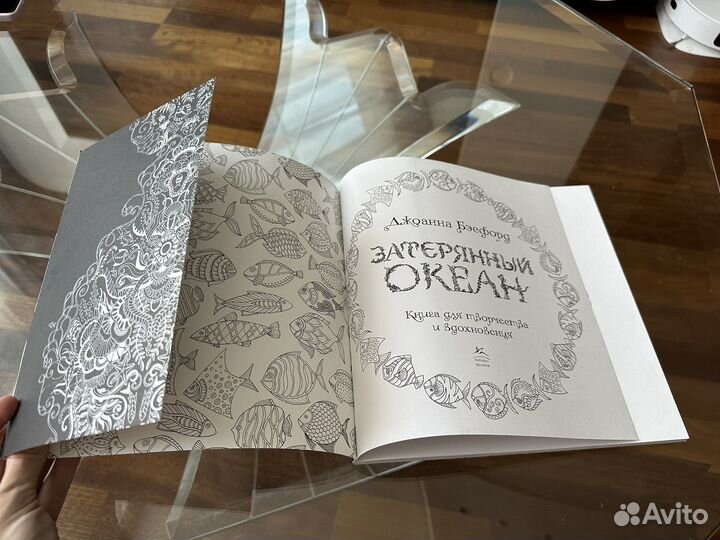 Джоанна Бэсфорд
ЗАТЕРЯННЫЙ
ОКЕАН
Книга для творчества
и вдохновения
Avito